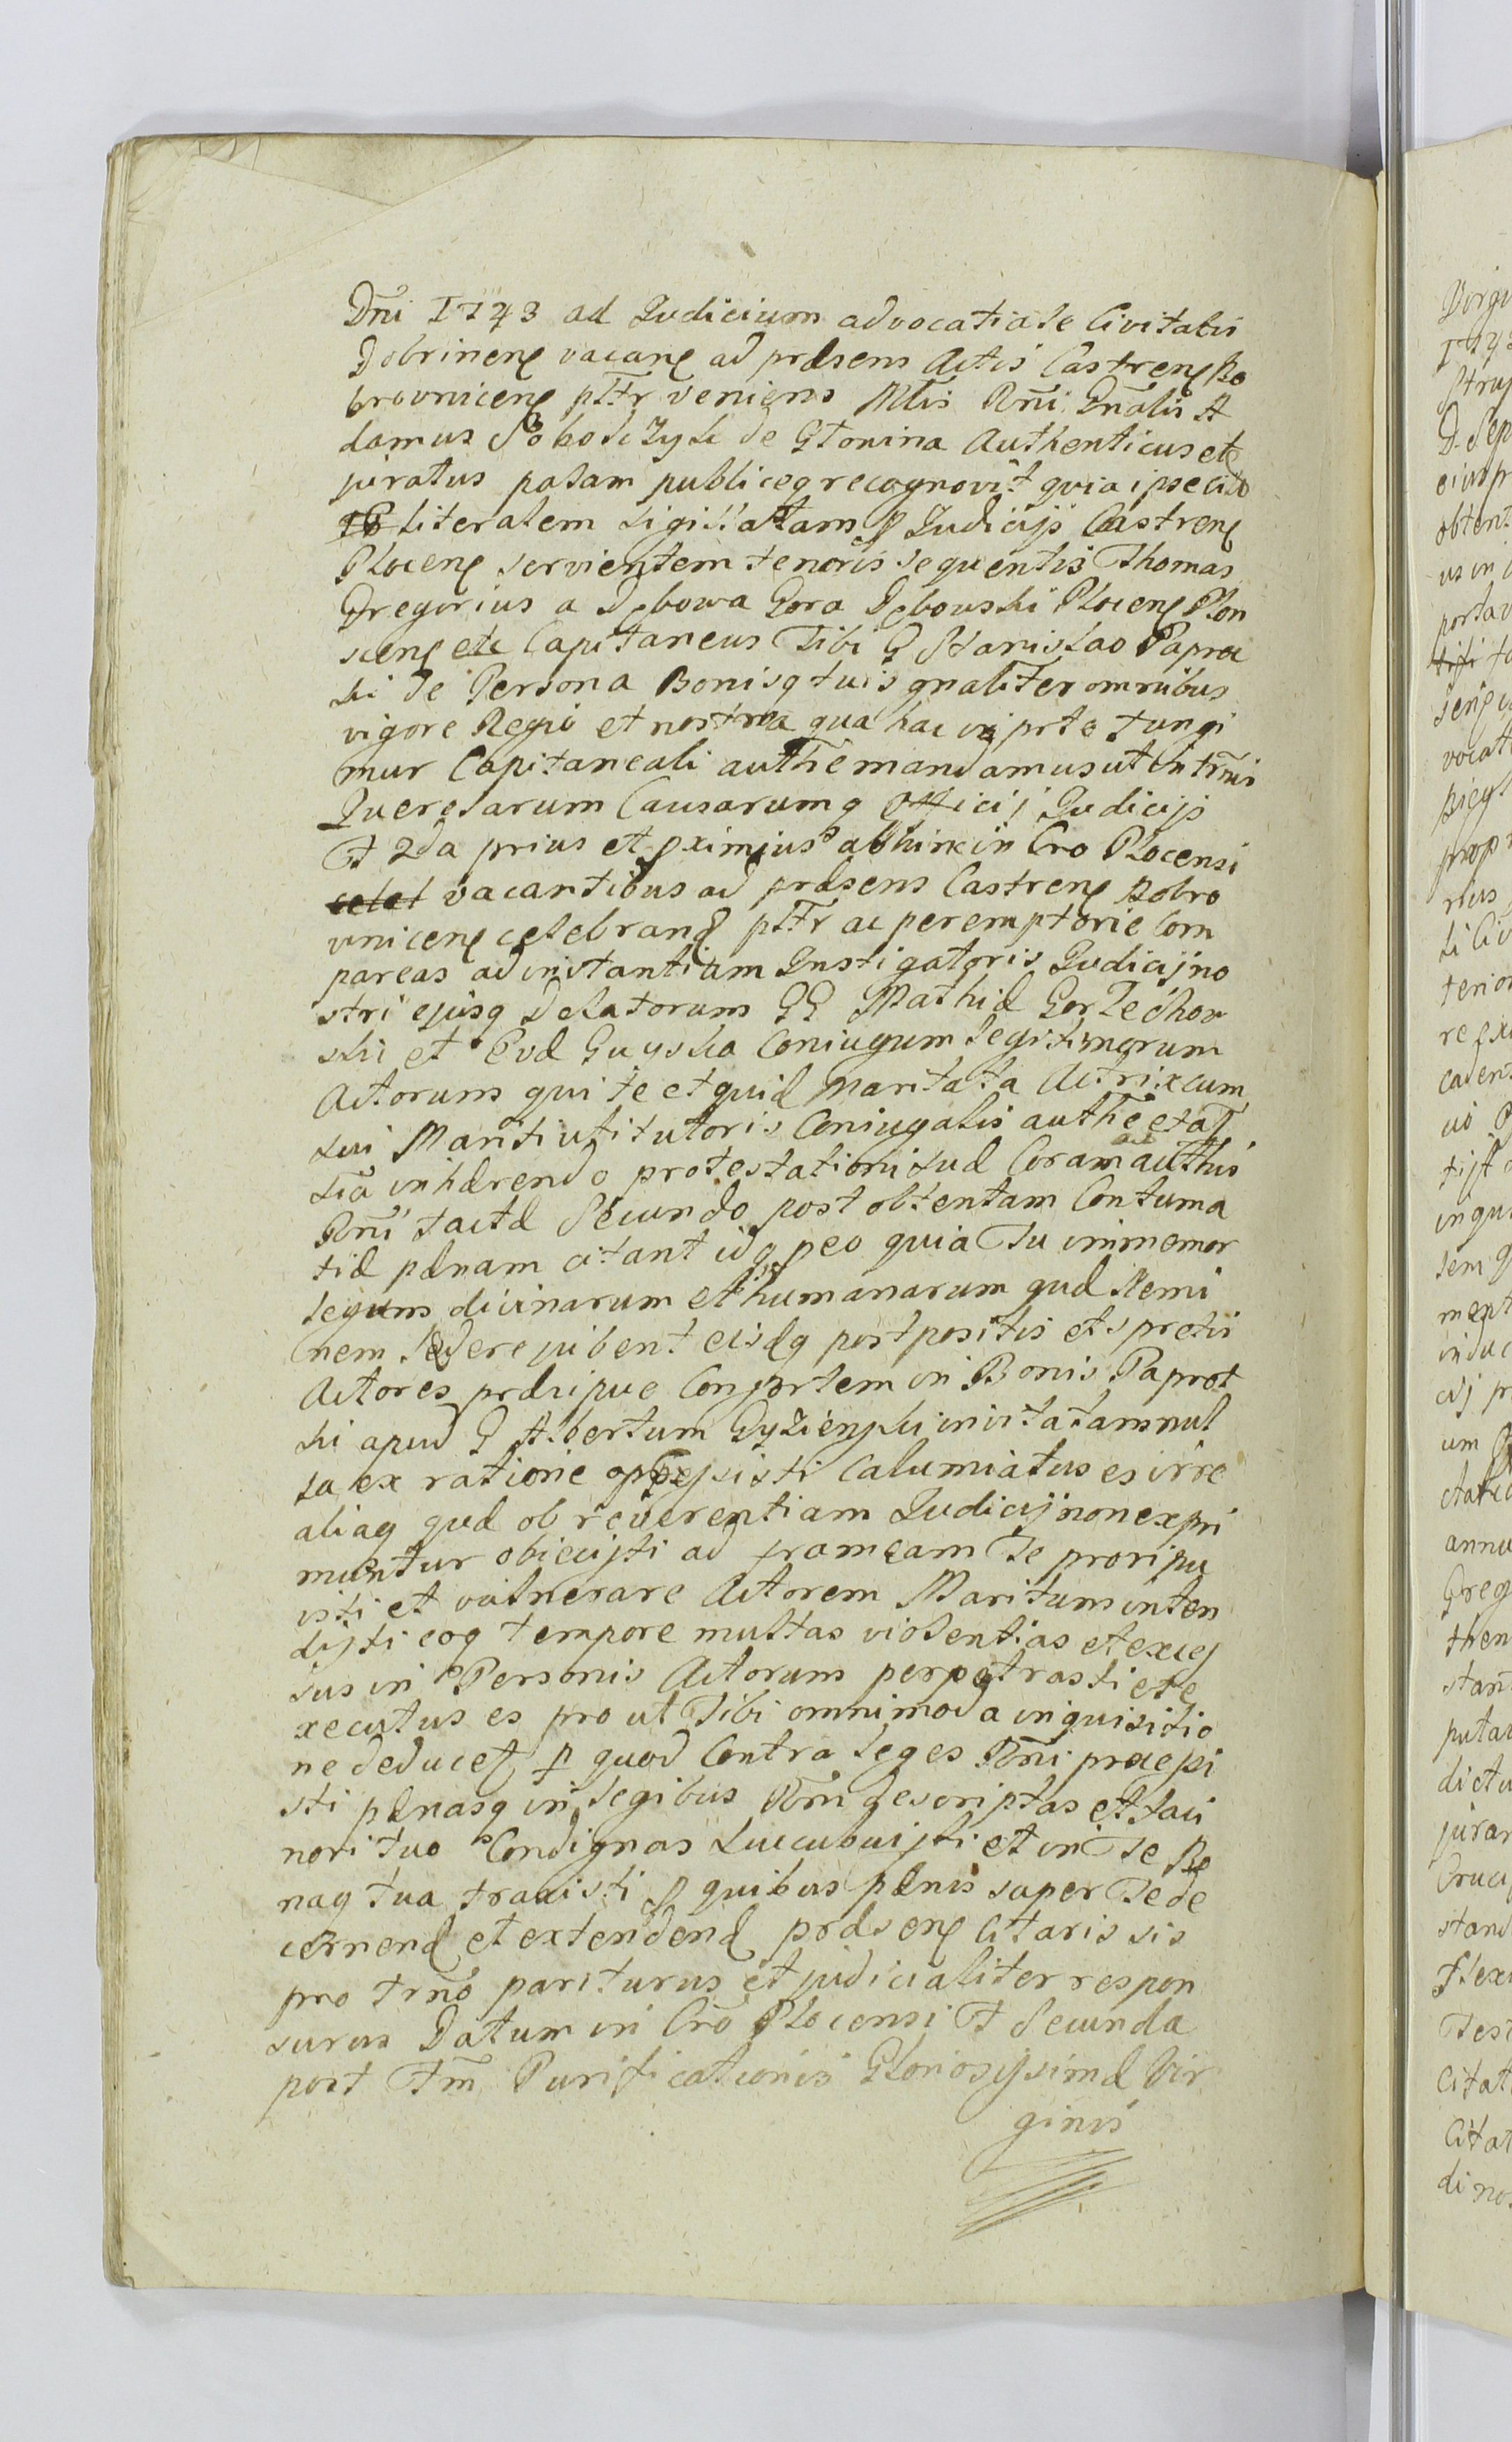 Dñi 1743 ad Judicium advocatiale Civitatis
Dobrinenς vacanς ad præsens Actis Castrenς Bo
brovnicenς pltr veniens Mtis Rñi Gnãlis A
damus Sobodczyk de Glonina Authenticus et
juratus palam publiceq recognovit quia ipse
literalem sigillatam p Judicijs Castrenς
Plocenς servientem tenoris sequentis Thomas
Gregorius a Dębowa Gora Dębowski Plocenς Plon
scenς etc Capitaneus Tibi G Stanislao Paproc
ki de Persona Bonisq tuis gnaliter omnibus
vigore Regio et nostra qua hac in prte fungi
mur Capitaneali authẽ mandamus ut in trñis
Querelarum Causarumq Officij Judicijs
F 2da prius et pximius abhinc in Cro Plocensi
celel vacantibus ad præsens Castrenς Bobro
vnicenς celebrand pltr ac peremptorie Com
pareas ad instantiam Instigatoris Judicij no
stri ejusq Delatorum GG Mathiæ Gorzechow
ski et Evæ Guyska Coniugum legitimorum
Actorum qui te et quid Maritata Actrix cum
sui Mariti uti tutoris Coniugalis authẽ et as
siã inhærendo protestationi suæ Coram authis
Rñi factæ Secundo post obtentam Contuma
tiæ pænam citant idq peo quia Tu immemor
legum divinarum et humanarum quæ Nemi
nem lædere jubent eisdq postpositis et spretis
Actores præcipue Consortem in Bonis Paprot
ki apud G Albertum Gyzienski invitatam nul
la ex ratione Calumniatus es irre
aliaq quæ ob reverentiam Judicij non expri
muntur obiecisti ad frameam Te proripu
isti et vulnerare Actorem Maritum inten
disti eoq tempore multas violentias et exces
sus in Personis Actorum perpetrasti et e
xecutus es pro ut Tibi omnimoda inquisitio
ne deducet p quod Contra leges Rñi præepi
sti pænasq in legibus Rñi descriptas et faci
nori tuo Condignas succubuisti et in Te Bo
naq tua traxisti p quibus pænis super Te de
cernend et extendend præsenς Citaris sis
pro trño pariturus et judicialiter respon
surus Datum in Crõ Plocensi F Secunda
post Ftm Purificationis Gloriosissimæ Vir
ginis